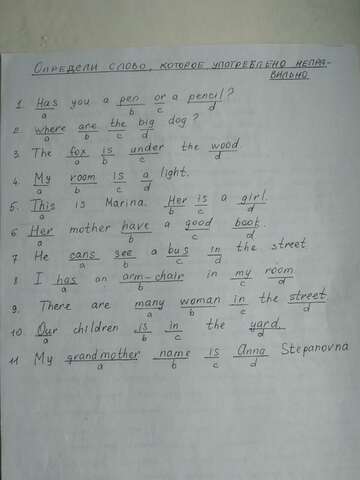 ОПРЕДЕЛИ СЛОВО, КОТОРОЕ УПОТРЕБЛЕНО НЕПРА-
ВИЛЬНО
1. Has you a pen or a pencil?
a b c d
2. where are the big dog?
a b c d
3. The fox is under the wood.
a b c d
4. My room is a light.
a b c d
5. This is Marina. Her is a girl.
a b c d
6. Her mother have a good book.
a b c d
7 He cans see a bus in the street
a b c d
8 I has an arm-chair in my room
a b c d
9. There are many woman in the street
a b c d
10. Our children is in the yard.
a b c d
11 My grandmother name is Anna Stepanovna
a b c d